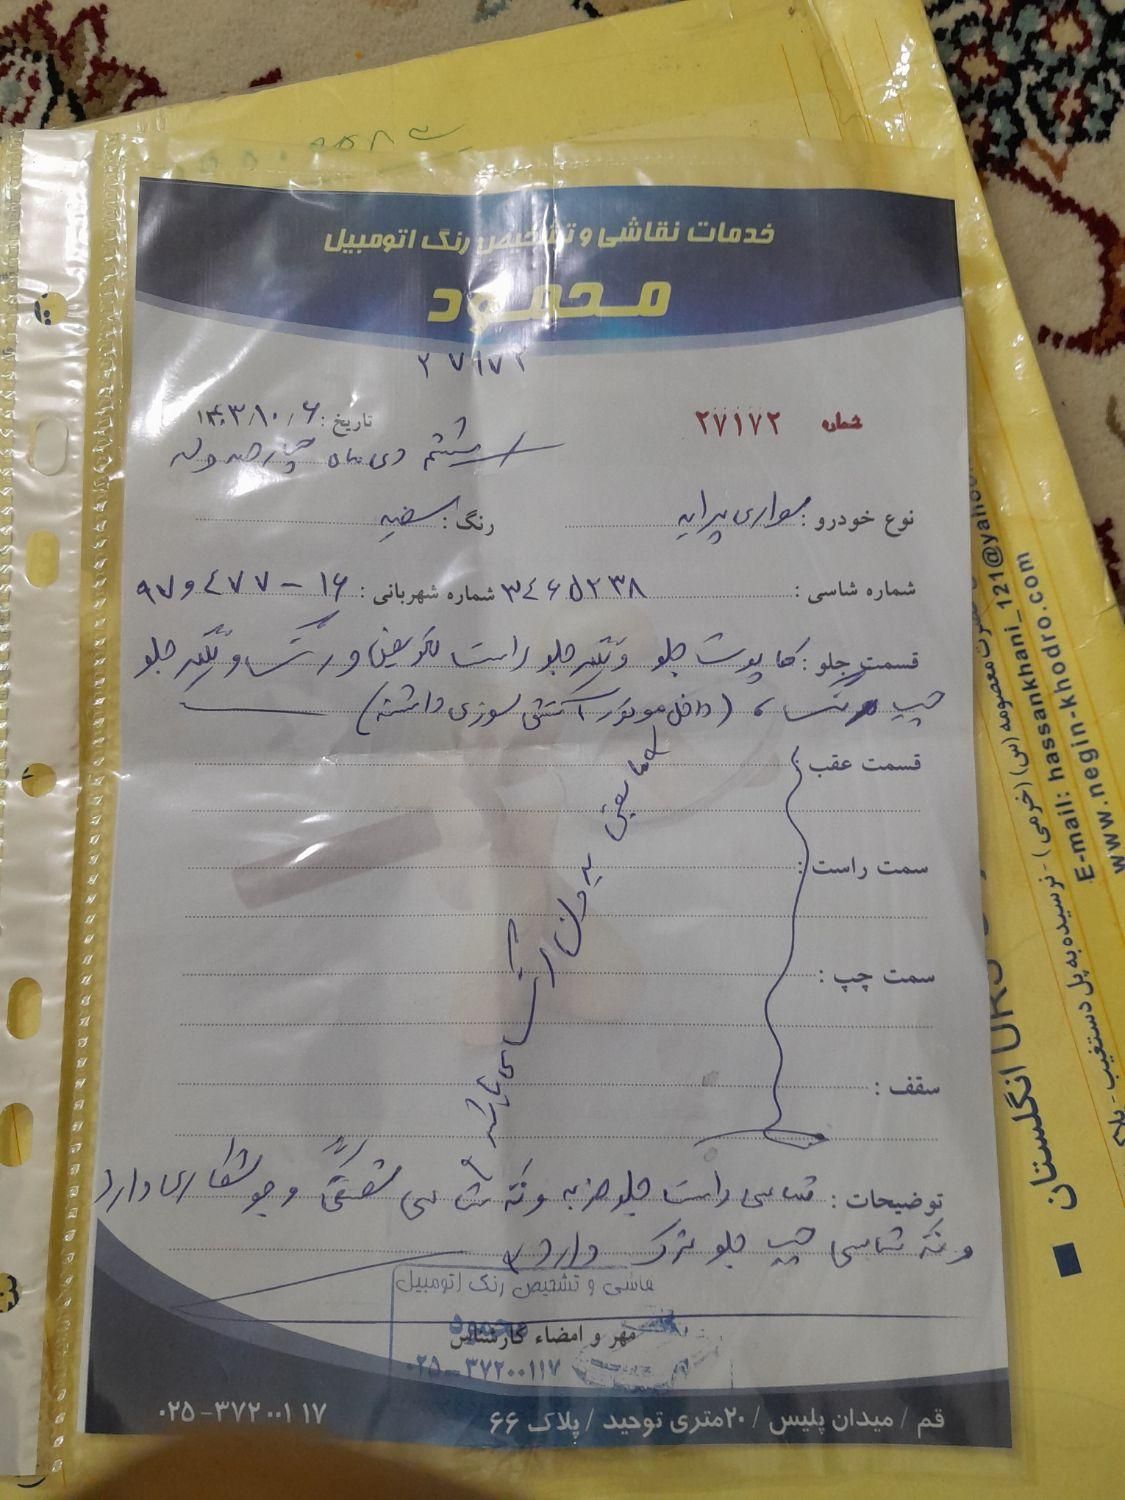 خدمات نقاشی و تشخیص رنگ اتومبیل
محمود
۲۷۱۷۲
شماره ۲۷۱۷۲
تاریخ : ۱۴۰۳/۱۰/۶
ششم دی ماه چهارصد و سه
نوع خودرو : سواری پراید
رنگ : سفید
شماره شاسی : ۳۴۶۵۲۳۸
شماره شهربانی : ۱۶ - ۴۷۷ و ۹۷
قسمت جلو : کاپوت جلو و گلگیر جلو راست تعویض و رنگ و گلگیر جلو
چپ رنگ ، (داخل موتور آتش سوزی داشته)
قسمت عقب :
سمت راست :
سمت چپ :
سقف :
مابقی بدون رنگ می باشد
توضیحات : شاسی راست جلو ضربه و ته شاسی و جوشکاری دارد
و ته شاسی چپ جلو ترک دارد
نقاشی و تشخیص رنگ اتومبیل
محمود
مهر و امضاء کارشناس
۰۲۵-۳۷۲۰۰۱۱۷
قم / میدان پلیس / ۲۰متری توحید / پلاک ۶۶
۰۲۵-۳۷۲۰۰۱۱۷
معصومه (س) (خرمی) - نرسیده به پل دستغیب -
E-mail: hassankhani_121@yahoo
www.negin-khodro.com
انگلستان